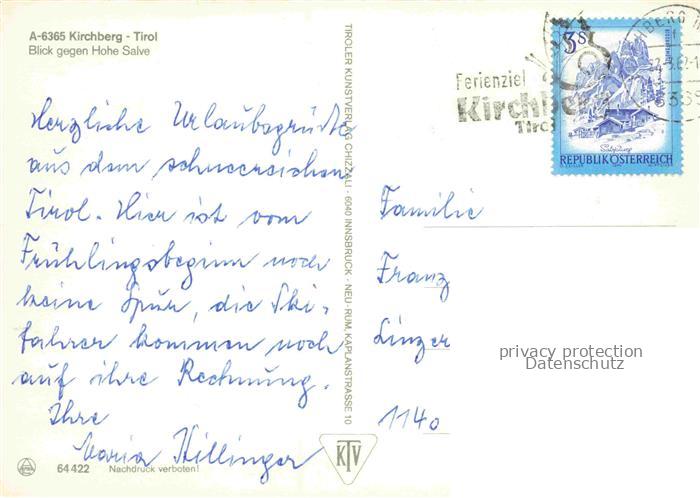 A-6365 Kirchberg - Tirol
Blick gegen Hohe Salve
Herzliche Urlaubsgrüße
aus dem schneereichen
Tirol. Hier ist vom
Frühlingsbeginn noch
keine Spur, die Ski-
fahrer kommen noch
auf ihre Rechnung.
Ihre
Maria Hillinger
64 422 Nachdruck verboten!
TIROLER KUNSTVERLAG CHIZZALI · 6040 INNSBRUCK - NEU-RUM, KAPLANSTRASSE 10
KTV
Ferienziel
Kirchberg
Tirol
3S
REPUBLIK ÖSTERREICH
Familie
Franz
Linzer
1140
privacy protection
Datenschutz